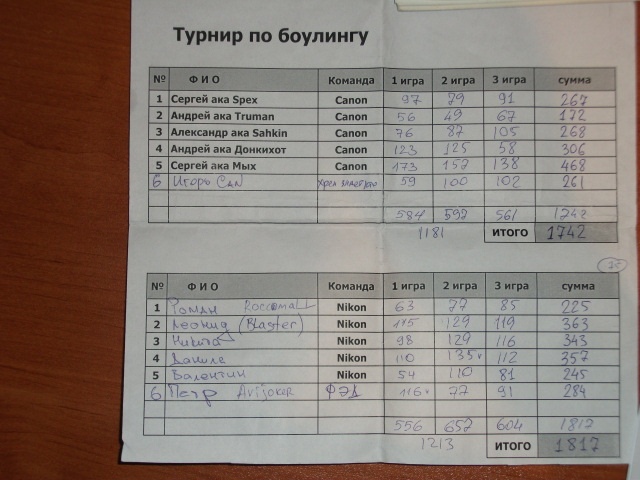 Турнир по боулингу
№ Ф И О Команда 1 игра 2 игра 3 игра сумма
1 Сергей ака Spex Canon 97 79 91 267
2 Андрей ака Truman Canon 56 49 67 172
3 Александр ака Sahkin Canon 76 87 105 268
4 Андрей ака Донкихот Canon 123 125 58 306
5 Сергей ака Мых Canon 173 157 138 468
6 Игорь Can 59 100 102 261
584 597 561 1742
1181 ИТОГО 1742
75
№ Ф И О Команда 1 игра 2 игра 3 игра сумма
1 Роман Nikon 63 77 85 225
2 Леонид (Blaster) Nikon 115 129 119 363
3 Никита Nikon 98 129 116 343
4 Данила Nikon 110 135 112 357
5 Валентин Nikon 54 110 81 245
6 Петр Avijoker ФЭД 116 77 91 284
556 657 604 1817
1213 ИТОГО 1817